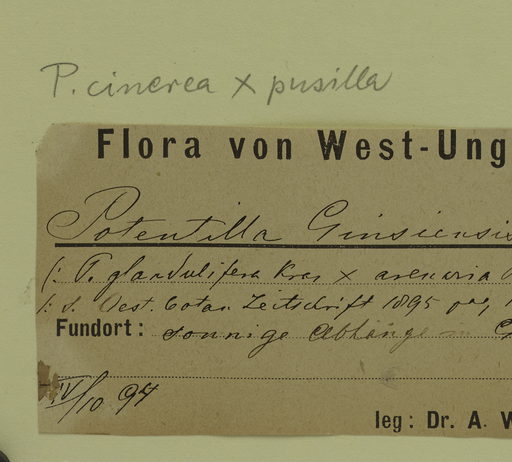 P. cinerea x pusilla
Flora von West-Ung
Potentilla Ginsiensis
(: P. glandulifera Kras x arenaria
/: s. Oest. botan. Zeitschrift 1895
Fundort: sonnige Abhänge
IV/10 94
leg: Dr. A. W